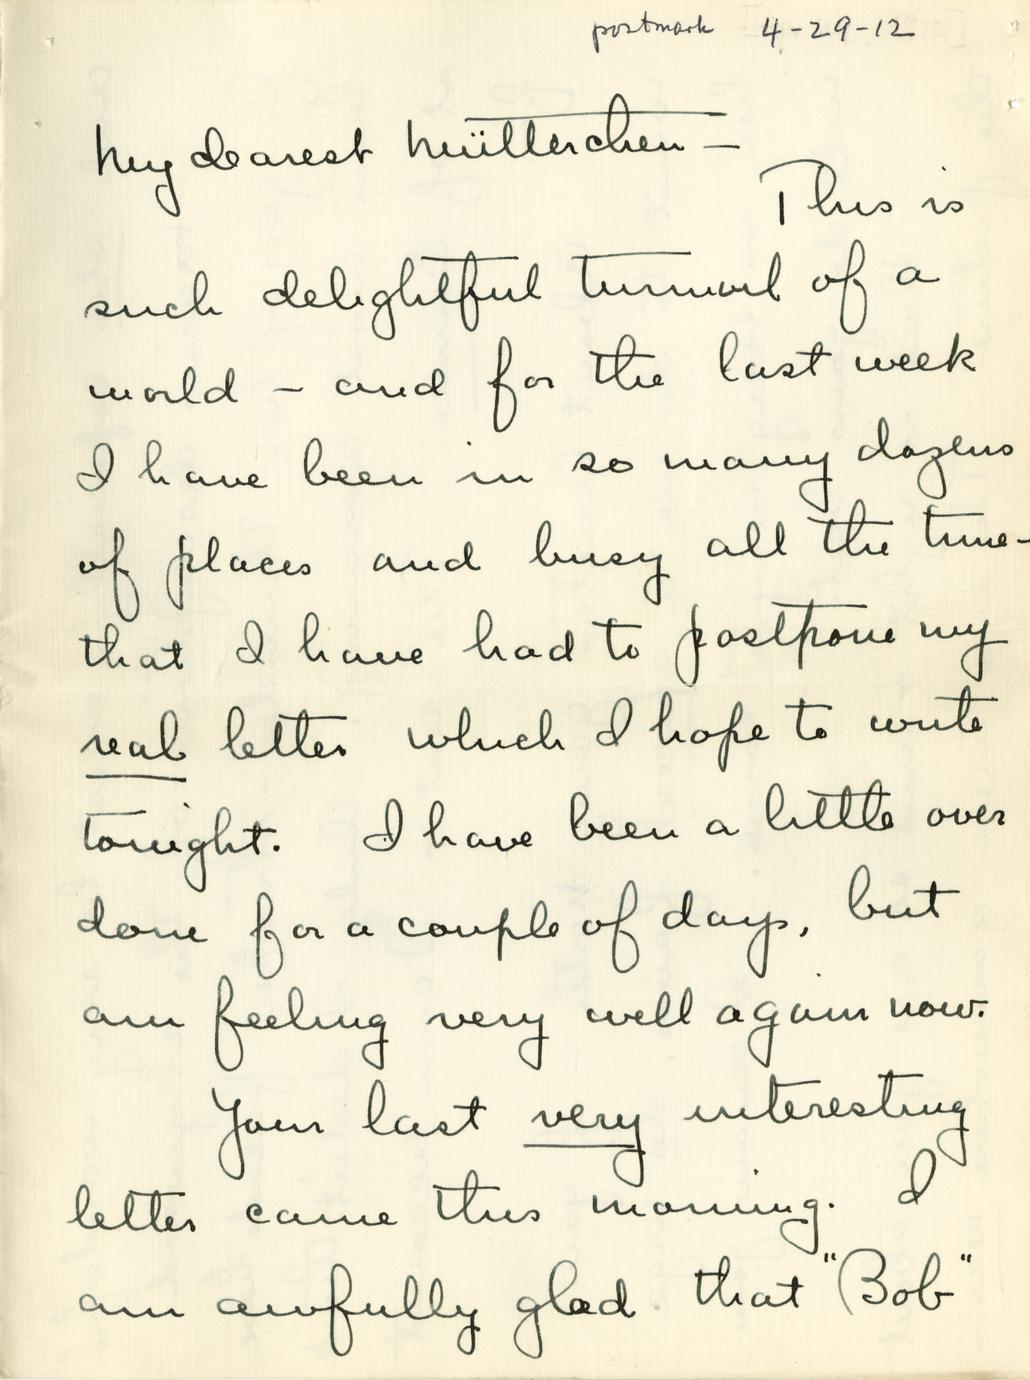 postmark 4-29-12
My dearest Mütterchen —
This is
such delightful turmoil of a
world — and for the last week
I have been in so many dozens
of places and busy all the time —
that I have had to postpone my
real letter which I hope to write
tonight. I have been a little over
done for a couple of days, but
am feeling very well again now.
Your last very interesting
letter came this morning. I
am awfully glad that "Bob"